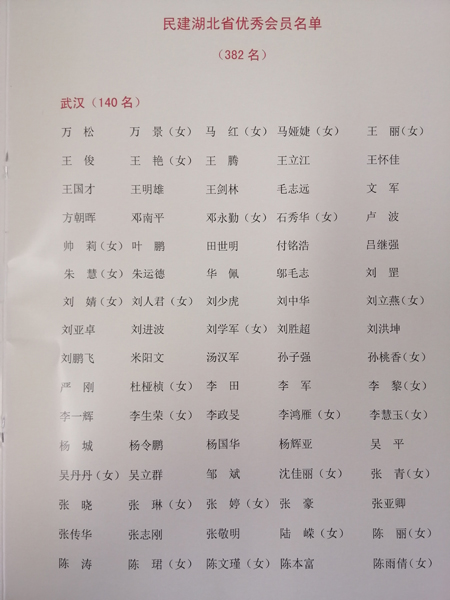 民建湖北省优秀会员名单
（382 名）
武汉（140 名）
万　松　万　景（女）　马　红（女）　马娅婕（女）　王　丽（女）
王　俊　王　艳（女）　王　腾　王立江　王怀佳
王国才　王明雄　王剑林　毛志远　文　军
方朝晖　邓南平　邓永勤（女）　石秀华（女）　卢　波
帅　莉（女）　叶　鹏　田世明　付铭浩　吕继强
朱　慧（女）　朱运德　华　佩　邬毛志　刘　罡
刘　婧（女）　刘人君（女）　刘少虎　刘中华　刘立燕（女）
刘亚卓　刘进波　刘学军（女）　刘胜超　刘洪坤
刘鹏飞　米阳文　汤汉军　孙子强　孙桃香（女）
严　刚　杜桠桢（女）　李　田　李　军　李　黎（女）
李一辉　李生荣（女）　李政旻　李鸿雁（女）　李慧玉（女）
杨　城　杨令鹏　杨国华　杨辉亚　吴　平
吴丹丹（女）　吴立群　邹　斌　沈佳丽（女）　张　青（女）
张　晓　张　琳（女）　张　婷（女）　张　豪　张亚卿
张传华　张志刚　张敬明　陆　嵘（女）　陈　丽（女）
陈　涛　陈　珺（女）　陈文瑾（女）　陈本富　陈雨倩（女）